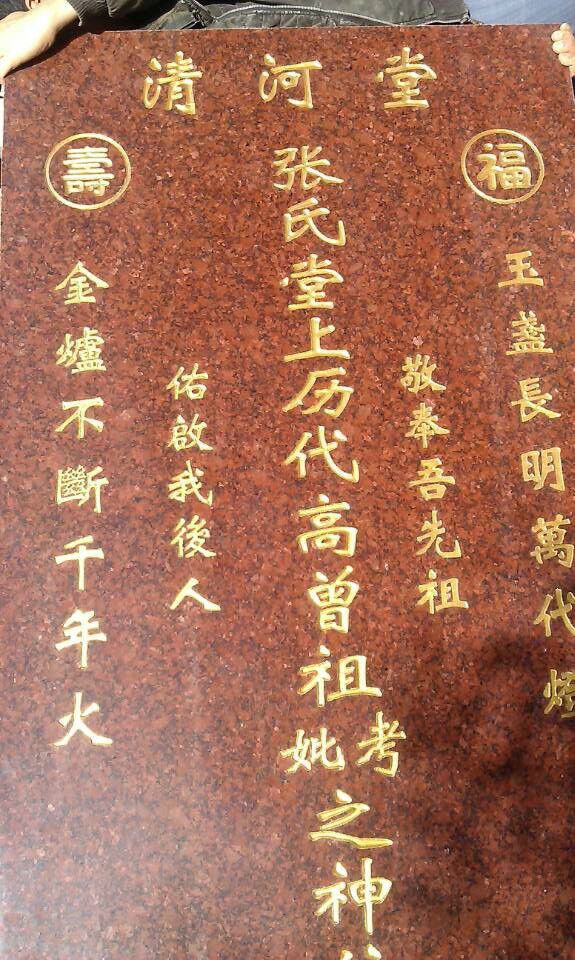 清河堂
福
壽
玉盞長明萬代燈
敬奉吾先祖
张氏堂上历代高曾祖考妣之神
佑啟我後人
金爐不斷千年火